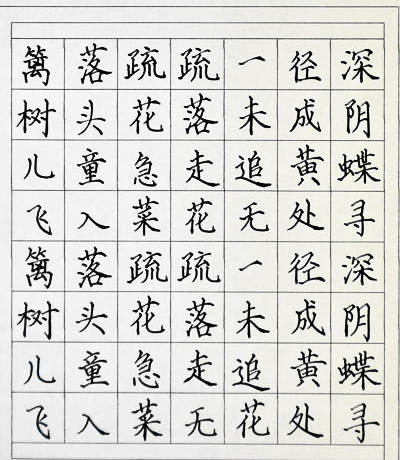 篱落疏疏一径深
树头花落未成阴
儿童急走追黄蝶
飞入菜花无处寻
篱落疏疏一径深
树头花落未成阴
儿童急走追黄蝶
飞入菜无花处寻